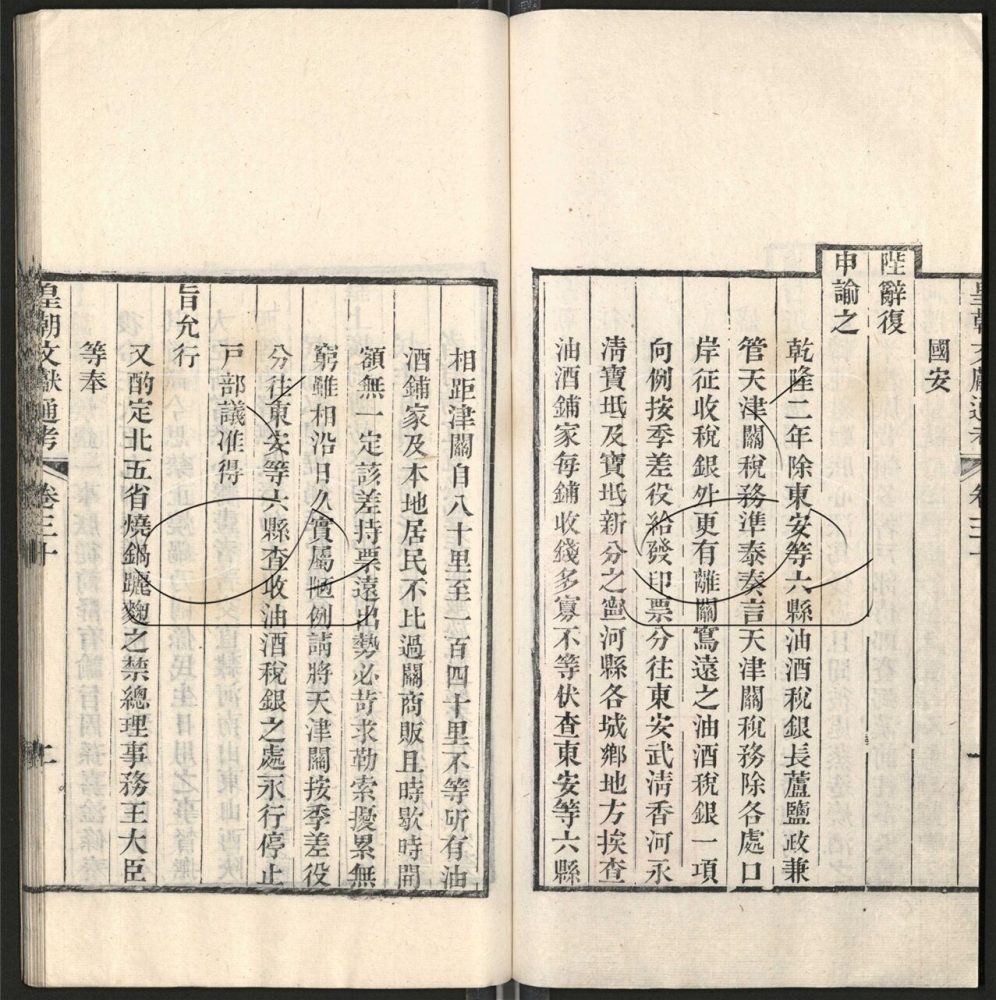 皇朝文獻通考 卷三十
國安
陛辭復
申諭之
乾隆二年除東安等六縣油酒稅銀長蘆鹽政兼
管天津關稅務準泰奏言天津關稅務除各處口
岸征收稅銀外更有離關寫遠之油酒稅銀一項
向例按季差役給發印票分往東安武清香河永
清寶坻及寶坻新分之寧河縣各城鄉地方挨查
油酒鋪家每鋪收錢多寡不等伏查東安等六縣
相距津關自八十里至一百四十里不等所有油
酒鋪家及本地居民不比過關商販且時歇時開
額無一定該差持票遠出勢必苛求勒索擾累無
窮雖相沿日久實屬陋例請將天津關按季差役
分往東安等六縣查收油酒稅銀之處永行停止
戸部議准得
旨允行
又酌定北五省燒鍋躧麴之禁總理事務王大臣
等奉
皇朝文獻通考 卷三十